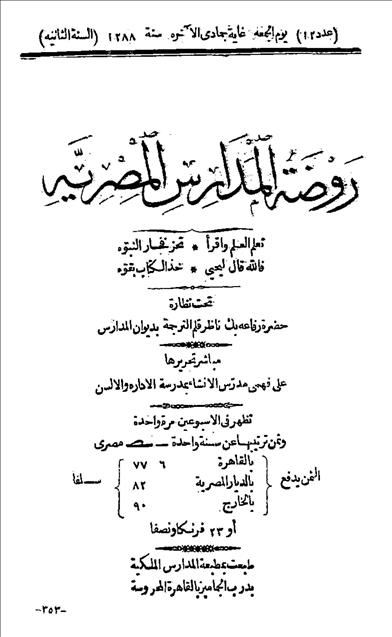 (عدد ١٢) يوم الجمعة غاية جمادى الآخره سنة ١٢٨٨ (السنة الثانيه)
روضة المدارس المصريه
تعلم العلم واقرأ * تحز فخار النبوه
فالله قال ليحيى * خذ الكتاب بقوه
تحت نظارة
حضرة رفاعه بك ناظر قلم الترجمة بديوان المدارس
مباشر تحريرها
على فهمى مدرّس الانشاء بمدرسة الاداره والالسن
تظهر فى الاسبوعين مرة واحدة
وثمن ترتيبها عن سنة واحدة مصرى
الثمن يدفع
بالقاهرة ٦ ٧٧
بالديار المصرية ٨٢
بالخارج ٩٠
سلفا
أو ٢٣ فرنكا ونصفا
طبعت بمطبعة المدارس الملكية
بدرب الجماميز بالقاهرة المحروسة
-٣٥٣-